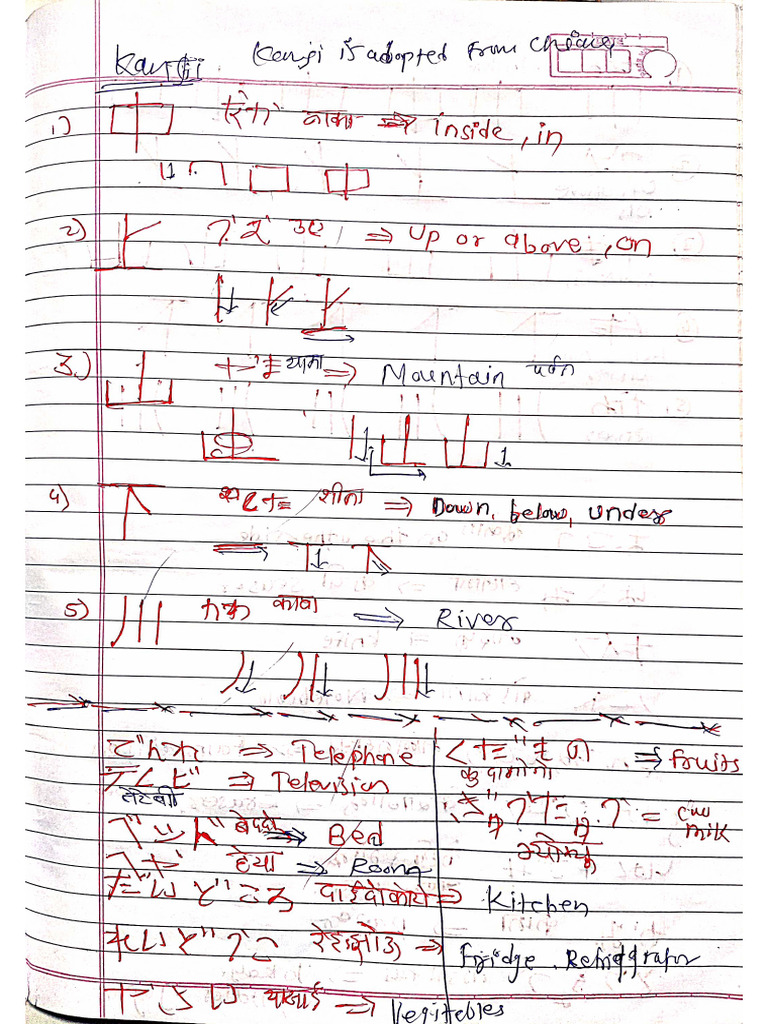 Kanji Kanji is adopted from China
1) 中 なか नाका ⇒ inside, in
中
2) 上 うえ उए ⇒ up or above, on
上
3.) 山 やま यामा ⇒ Mountain पर्वत
山
4) 下 した शीता ⇒ Down, below, under
下
5) 川 かわ कावा ⇒ River
川
でんわ ⇒ Telephone
テレビ ⇒ Television
तेरेबी
ベッド बेददो ⇒ Bed
へや हेया ⇒ Room
だいどころ दाईदोकोरो ⇒ Kitchen
れいぞうこ ⇒ Fridge. Refrigrator
やさい यासाई ⇒ Vegitables
くだもの ⇒ fruits
कुदामोनो
= cow milk